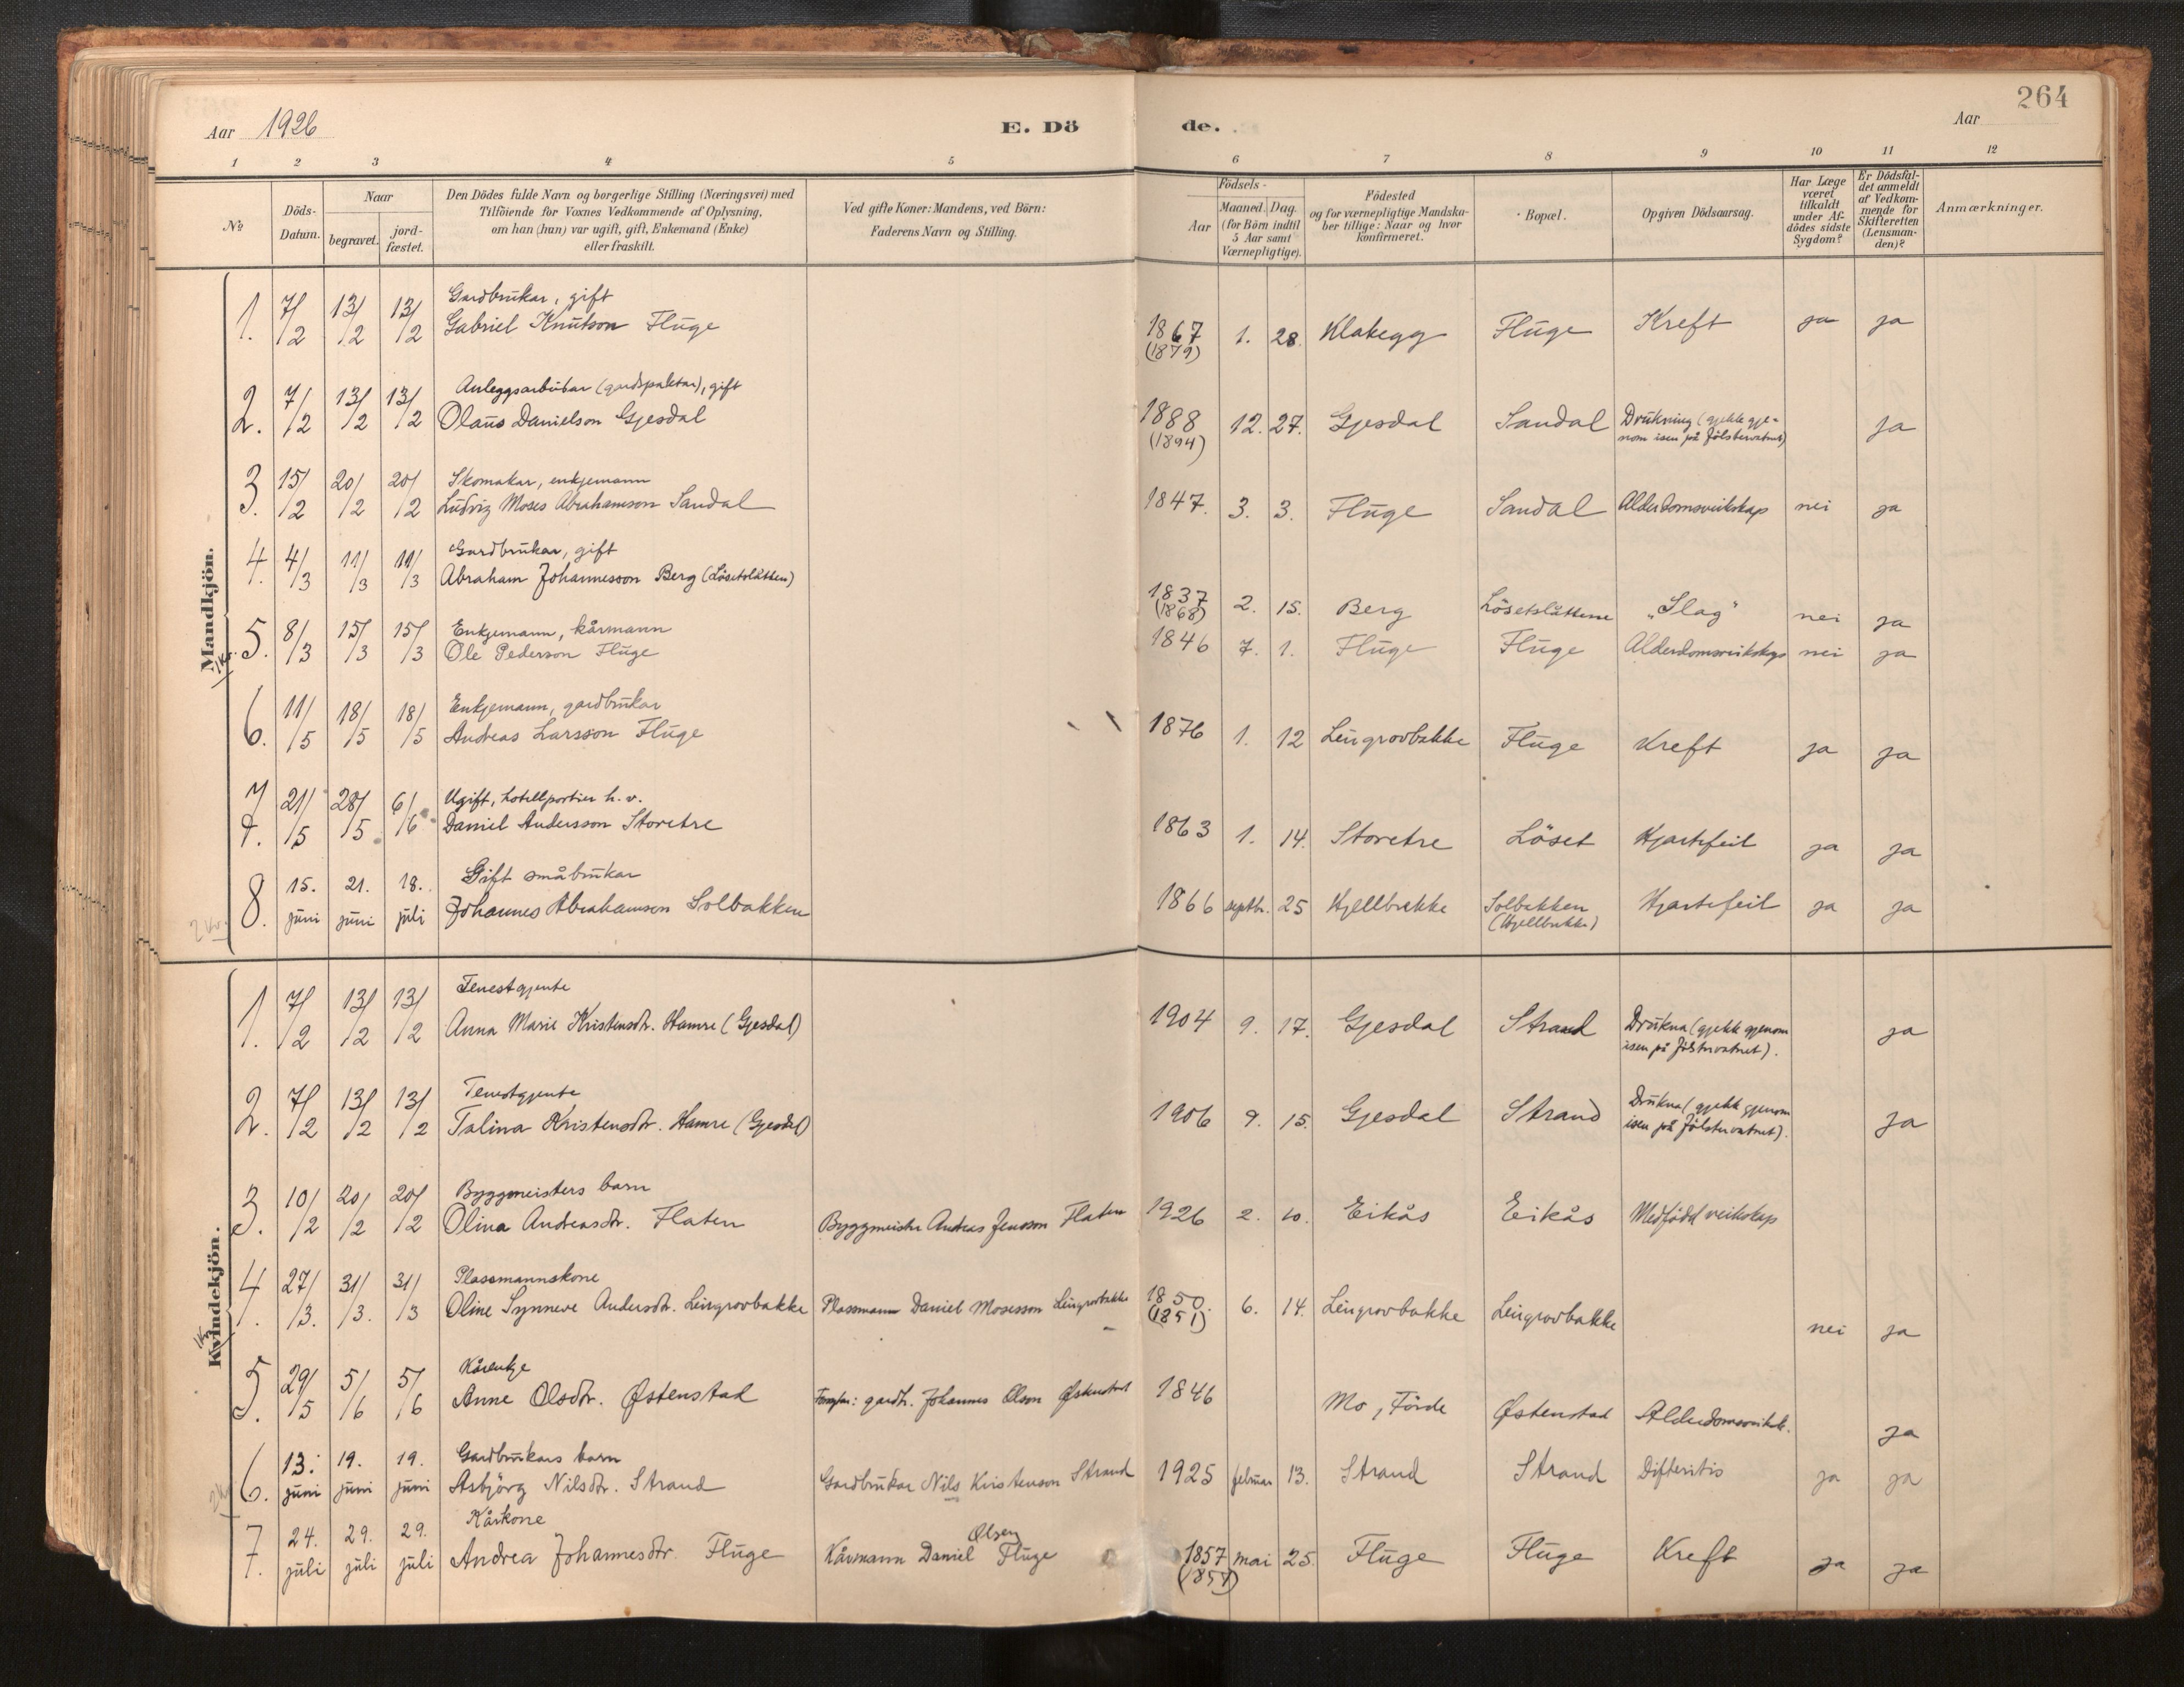 264
Aar 1926 E. Dö de. Aar
1 2 3 4 5 6 7 8 9 10 11 12
No
Döds-Datum.
Naar
begravet.
jord-fæstet.
Den Dödes fulde Navn og borgerlige Stilling (Næringsvei) med
Tilföiende for Voxnes Vedkommende af Oplysning,
om han (hun) var ugift, gift, Enkemand (Enke)
eller fraskilt.
Ved gifte Koner: Mandens, ved Börn:
Faderens Navn og Stilling.
Födsels-
Aar
Maaned. Dag.
(for Börn indtil
5 Aar samt
Værnepligtige).
Födested
og for værnepligtige Mandska-
ber tillige: Naar og hvor
konfirmeret.
Bopæl.
Opgiven Dödsaarsag.
Har Læge
været
tilkaldt
under Af-
dödes sidste
Sygdom?
Er Dödsfal-
det anmeldt
af Vedkom-
mende for
Skifteretten
(Lensman-
den)?
Anmærkninger.
Mandkjön.
Gardbrukar, gift
1. 7/2 13/2 13/2 Gabriel Knutson Fluge 1867 1. 28. Klakegg Fluge Kreft ja ja
(1879)
Anleggsarbubar (gardspaktar), gift
2. 7/2 13/2 13/2 Olaus Danielson Gjesdal 1888 12. 27. Gjesdal Sandal Drukning (gjekk gje-
(1894) nom isen på Jölstervatnet) ja
Skomakar, enkjemann
3. 15/2 20/2 20/2 Ludvig Moses Abrahamson Sandal 1847. 3. 3. Fluge Sandal Alderdomsveikskap nei ja
Gardbrukar, gift
4. 4/3 11/3 11/3 Abraham Johannesson Berg (Lösetslåtten) 1837 2. 15. Berg Lösetslåttene "Slag" nei ja
(1868)
Enkjemann, kårmann
5. 8/3 15/3 15/3 Ole Pederson Fluge 1846 7. 1. Fluge Fluge Alderdomsveikskap nei ja
Enkjemann, gardbrukar
6. 11/5 18/5 18/5 Andreas Larsson Fluge 1876 1. 12 Leingrovbakke Fluge Kreft ja ja
Ugift, hotellportier h. v.
7. 21/5 28/5 6/6 Daniel Andersson Storetre 1863 1. 14. Storetre Löset Hjartefeil ja ja
Gift småbrukar
2 kr. 8. 15. juni 21. juni 18. juli Johannes Abrahamson Solbakken 1866 septbr. 25 Hjellbrekke Solbakken Hjartefeil ja ja
(Hjellbrekke)
Kvindekjön.
Tenestgjente
1. 7/2 13/2 13/2 Anna Marie Kristensdtr. Hamre (Gjesdal) 1904 9. 17. Gjesdal Strand Drukna (gjekk gjenom
isen på Jölstervatnet). ja
Tenestgjente
2. 7/2 13/2 13/2 Talina Kristensdtr. Hamre (Gjesdal) 1906 9. 15. Gjesdal Strand Drukna (gjekk gjenom
isen på Jölstervatnet). ja
Byggmeisters barn
3. 10/2 20/2 20/2 Olina Andreasdtr. Flaten Byggmeister Andreas Jensson Flaten 1926 2. 10. Eikås Eikås Medfödd veikskap
Plassmannskone
4. 27/3. 31/3. 31/3 Oline Synneve Andersdtr. Leingrovbakke Plassmann Daniel Mosesson Leingrovbakke 1850. 6. 14. Leingrovbakke Leingrovbakke nei ja
(1851)
Kårenkje
5. 29/5 5/6 5/6 Anne Olsdtr. Østenstad gardbr. Johannes Olson Østenstad 1846 Mo, Förde Østenstad Alderdomsveiksk. ja
Gardbrukars barn
6. 13. juni 19. juni 19. juni Asbjörg Nilsdtr. Strand Gardbrukar Nils Kristenson Strand 1925 februar 13. Strand Strand Difteritis ja ja
Kårkone
7. 24. juli 29. juli 29. juli Andrea Johannesdtr. Fluge Kårmann Daniel Olsen Fluge 1857 mai 25. Fluge Fluge Kreft ja ja
(1857)